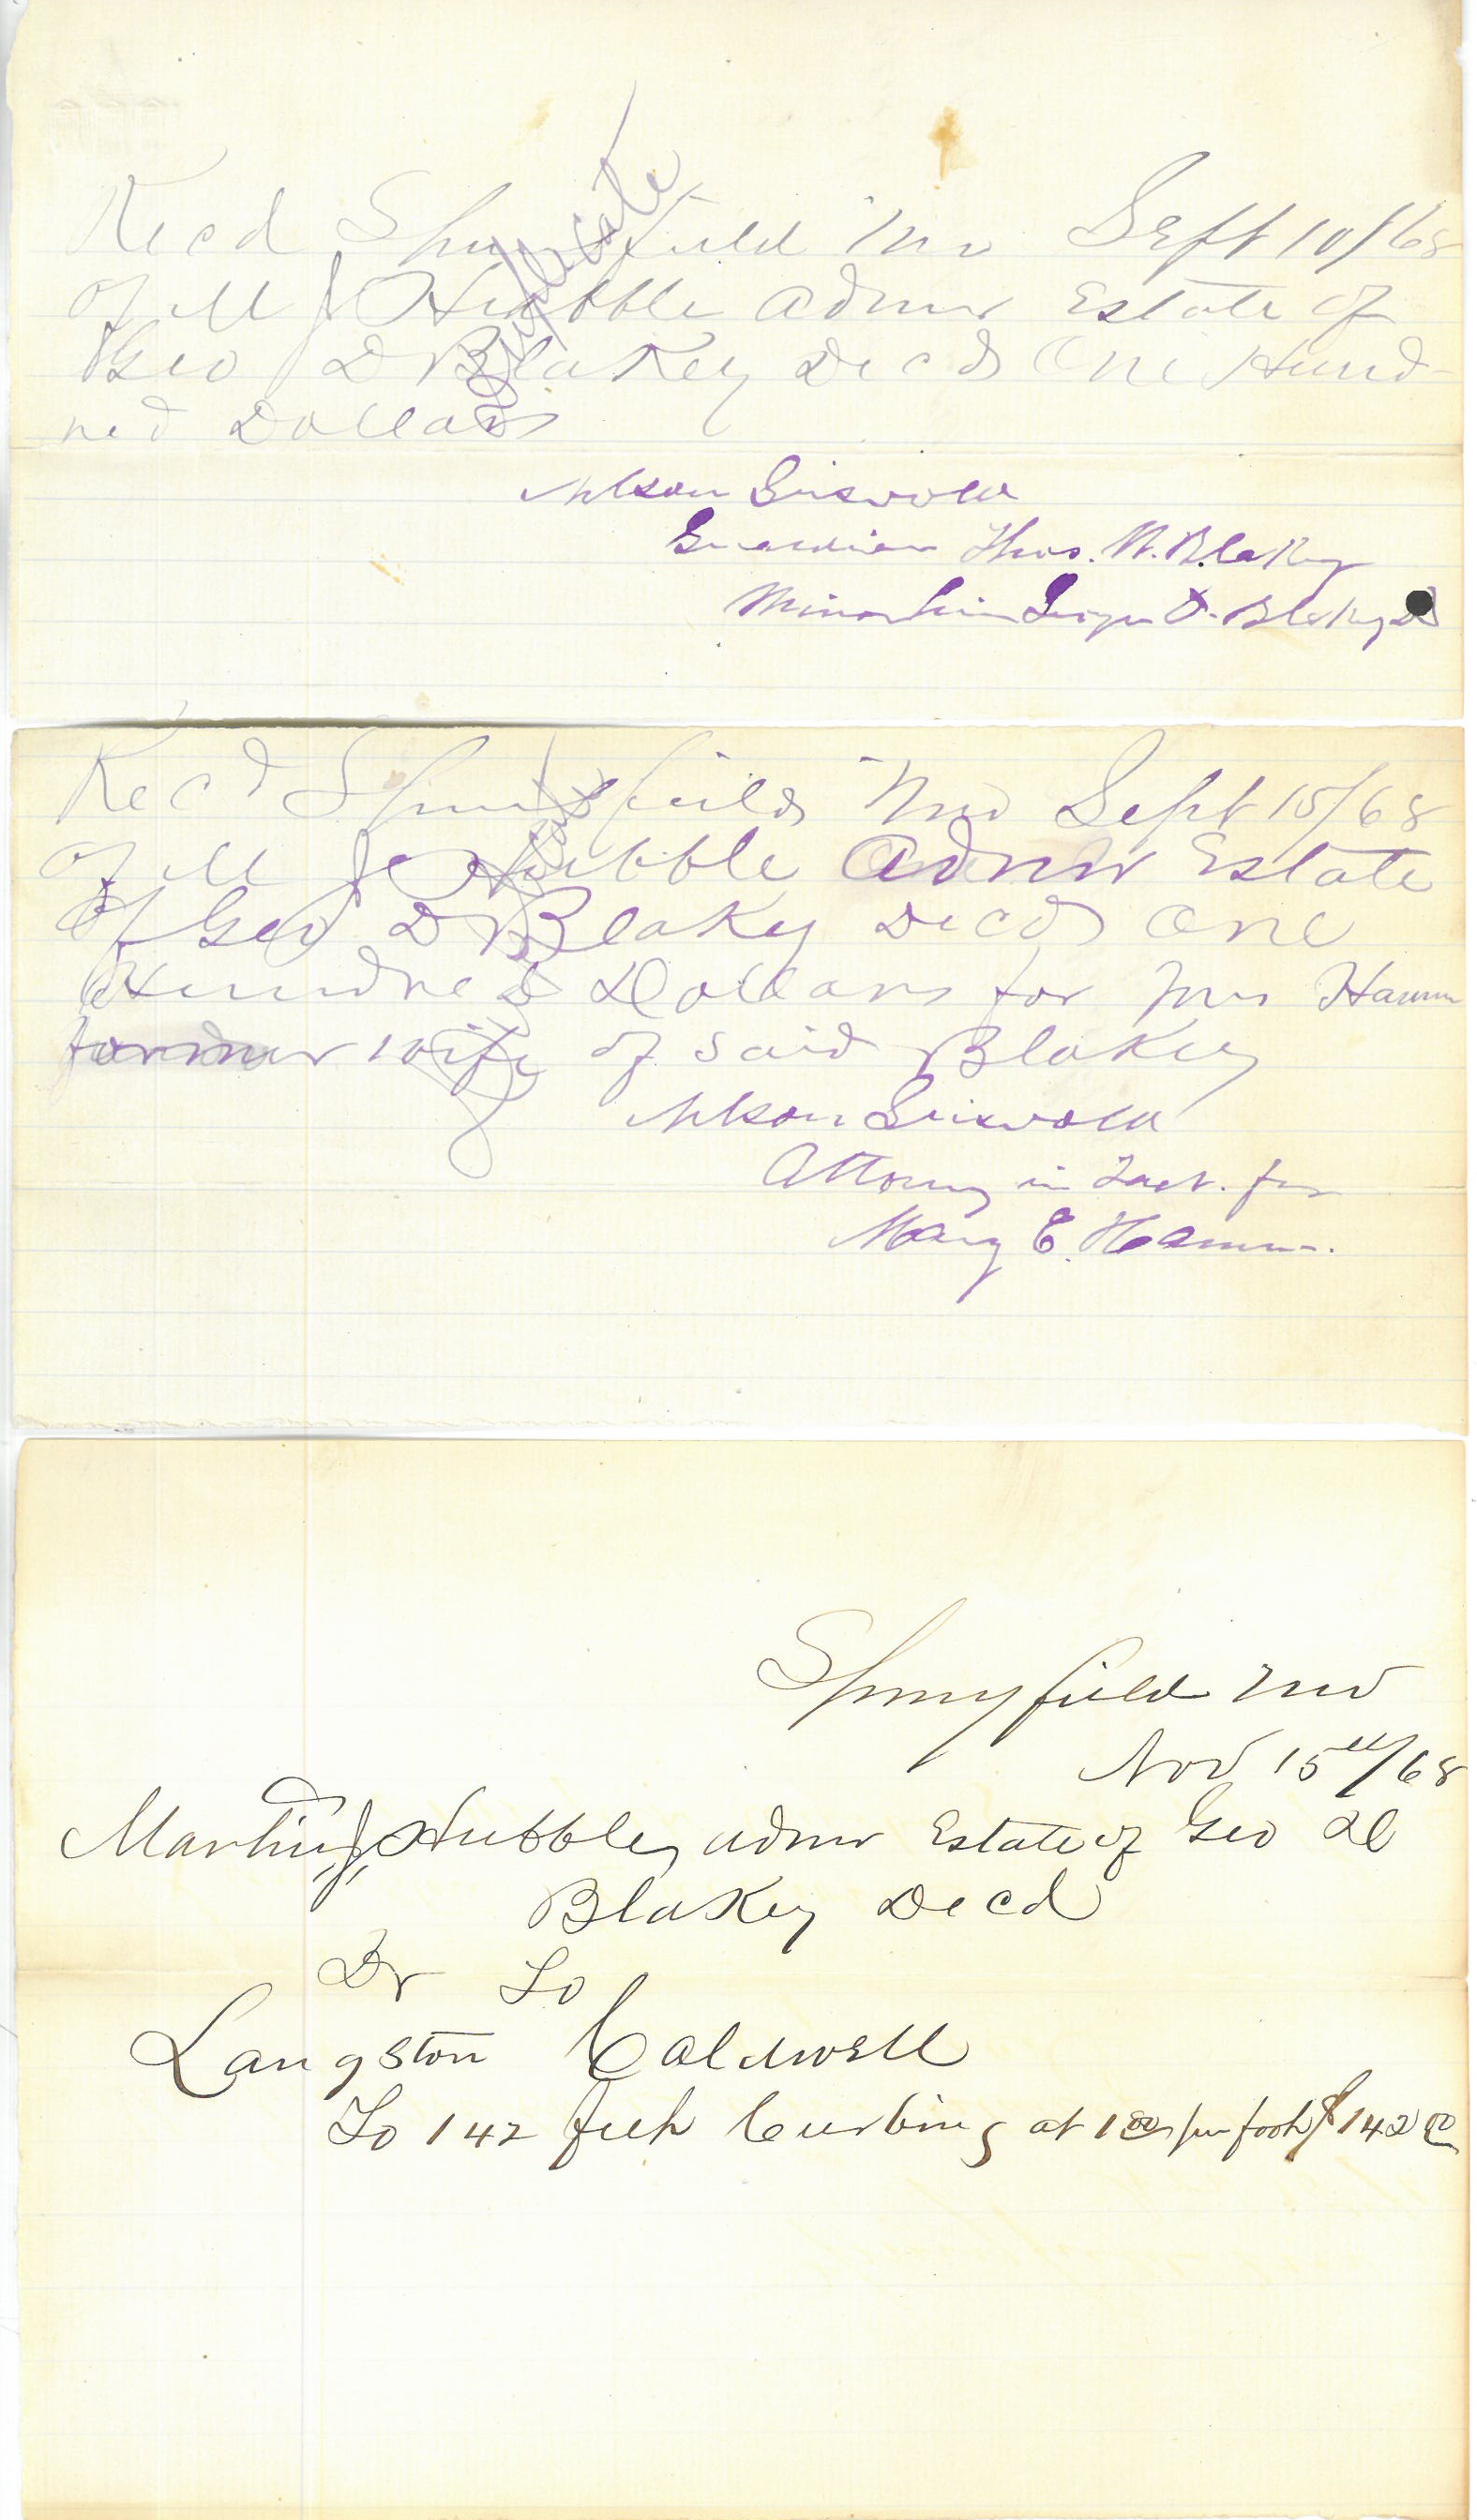 Recd Springfield Mo Sept 10/68
of M J Hubble Admr Estate of
Geo D Blakey Decd One Hund-
red Dollars
Duplicate
Nelson Griswold
Guardian Thos. W. Blakey
Minor heir George D. Blakey Dd
Recd Springfield Mo Sept 15/68
of M J Hubble Admr Estate
of Geo D Blakey Decd One
Hundred Dollars for Mrs Hamm
former wife of said Blakey
Duplicate
Nelson Griswold
Attorney in Fact. for
Mary E. Hamm.
Springfield Mo
Nov 15th/68
Martin J Hubble, Admr Estate of Geo D
Blakey Decd
Dr To
Langston Caldwell
To 142 feet Curbing at 1 00 per foot $142 00